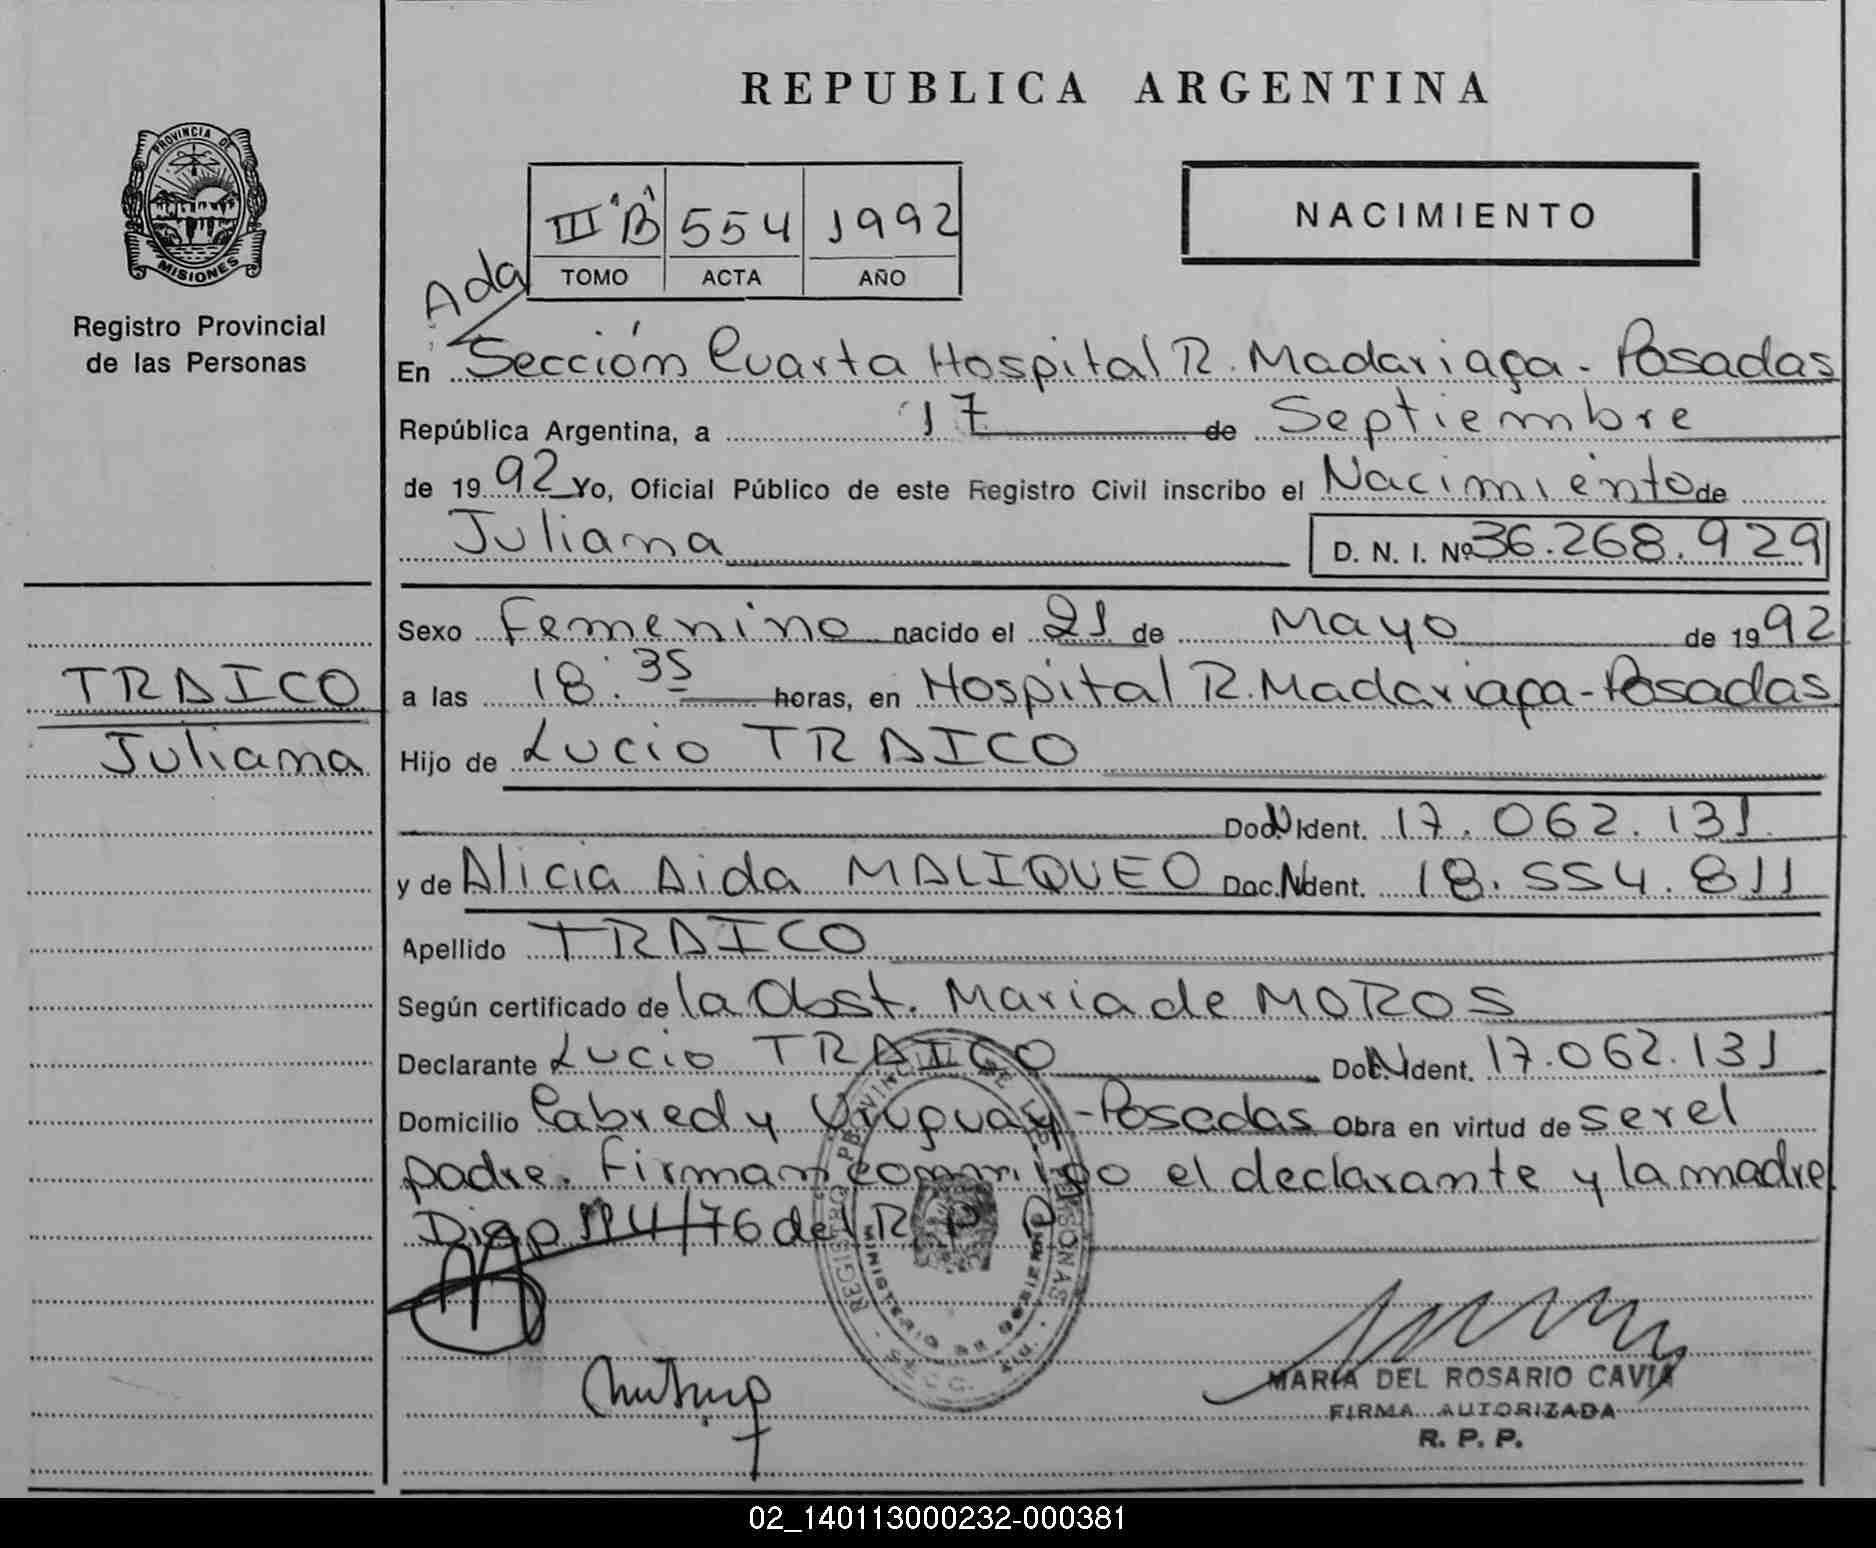 REPUBLICA ARGENTINA
PROVINCIA DE
MISIONES
Registro Provincial
de las Personas
III "B" 554 1992
TOMO ACTA AÑO
NACIMIENTO
Ada
En Sección Cuarta Hospital R. Madariaga - Posadas
República Argentina, a 17 de Septiembre
de 1992 Yo, Oficial Público de este Registro Civil inscribo el Nacimiento de
Juliana D. N. I. Nº 36.268.929
Sexo Femenino nacido el 21 de Mayo de 1992
TRAICO
Juliana
a las 18:35 horas, en Hospital R. Madariaga - Posadas
Hijo de Lucio TRAICO
Doc. N Ident. 17.062.131
y de Alicia Aida MALIQUEO Doc. N Ident. 18.554.811
Apellido TRAICO
Según certificado de la Obst. Maria de MOROS
Declarante Lucio TRAICO Doc. N Ident. 17.062.131
Domicilio Cabred y Uruguay - Posadas Obra en virtud de ser el
padre. Firman conmigo el declarante y la madre
Disp Nº 4/76 del R. P. P.
REGISTRO PROVINCIAL DE LAS PERSONAS
MINISTERIO DE GOBIERNO
MARIA DEL ROSARIO CAVIA
FIRMA AUTORIZADA
R. P. P.
02_140113000232-000381